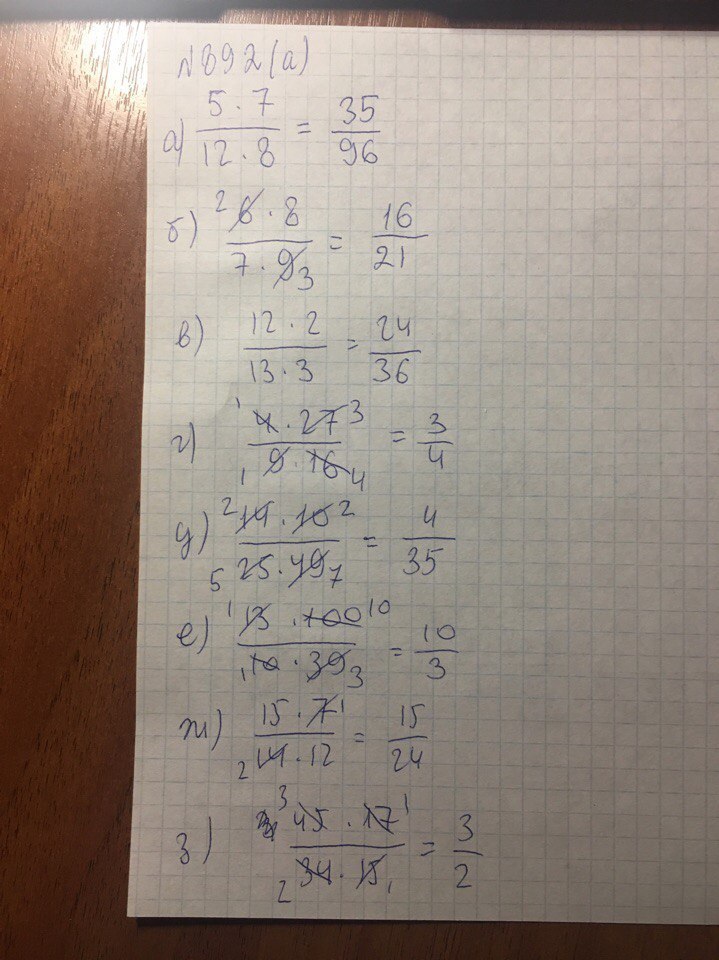 №892(а)
а) 5·7/12·8 = 35/96
б) 2 6·8/7·9 3 = 16/21
в) 12·2/13·3 = 24/36
г) 1 4·27 3/1 9·16 4 = 3/4
д) 2 14·10 2/5 25·49 7 = 4/35
е) 1 13·100 10/1 10·39 3 = 10/3
ж) 15·7 1/2 14·12 = 15/24
з) 3 45·17 1/2 34·15 1 = 3/2